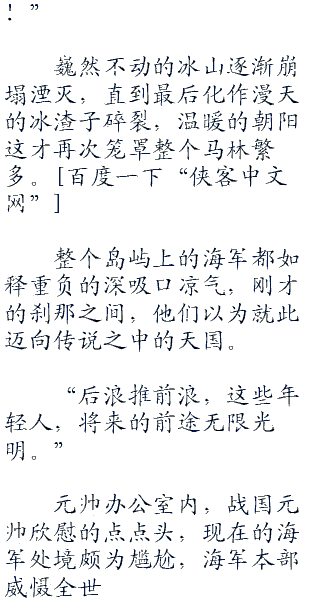 ！”
巍然不动的冰山逐渐崩
塌湮灭，直到最后化作漫天
的冰渣子碎裂，温暖的朝阳
这才再次笼罩整个马林繁
多。[百度一下“侠客中文
网”]
整个岛屿上的海军都如
释重负的深吸口凉气，刚才
的刹那之间，他们以为就此
迈向传说之中的天国。
“后浪推前浪，这些年
轻人，将来的前途无限光
明。”
元帅办公室内，战国元
帅欣慰的点点头，现在的海
军处境颇为尴尬，海军本部
威慑全世